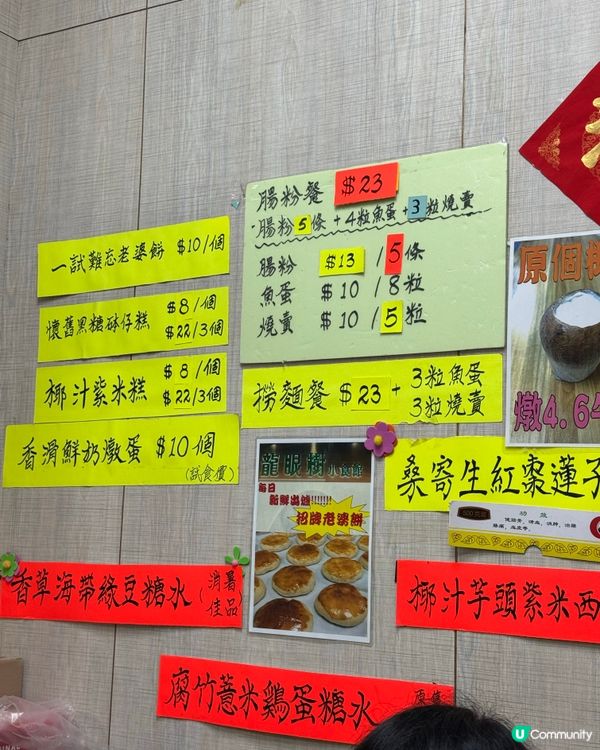 腸粉餐 $23
腸粉5條+4粒魚蛋+3粒燒賣
腸粉 $13 / 5條
魚蛋 $10 / 8粒
燒賣 $10 / 5粒
一試難忘老婆餅 $10/個
懷舊黑糖砵仔糕 $8/個
$22/3個
椰汁紫米糕 $8/個
$22/3個
香滑鮮奶燉蛋 $10個
(試食價)
撈麵餐 $23 + 3粒魚蛋
3粒燒賣
原個椰
燉4.6
龍眼樹小食館
每日
新鮮出爐!!!!!!!
招牌老婆餅
桑寄生紅棗蓮子
功效
香草海帶綠豆糖水(消暑佳品)
椰汁芋頭紫米西
腐竹薏米鷄蛋糖水
U Community